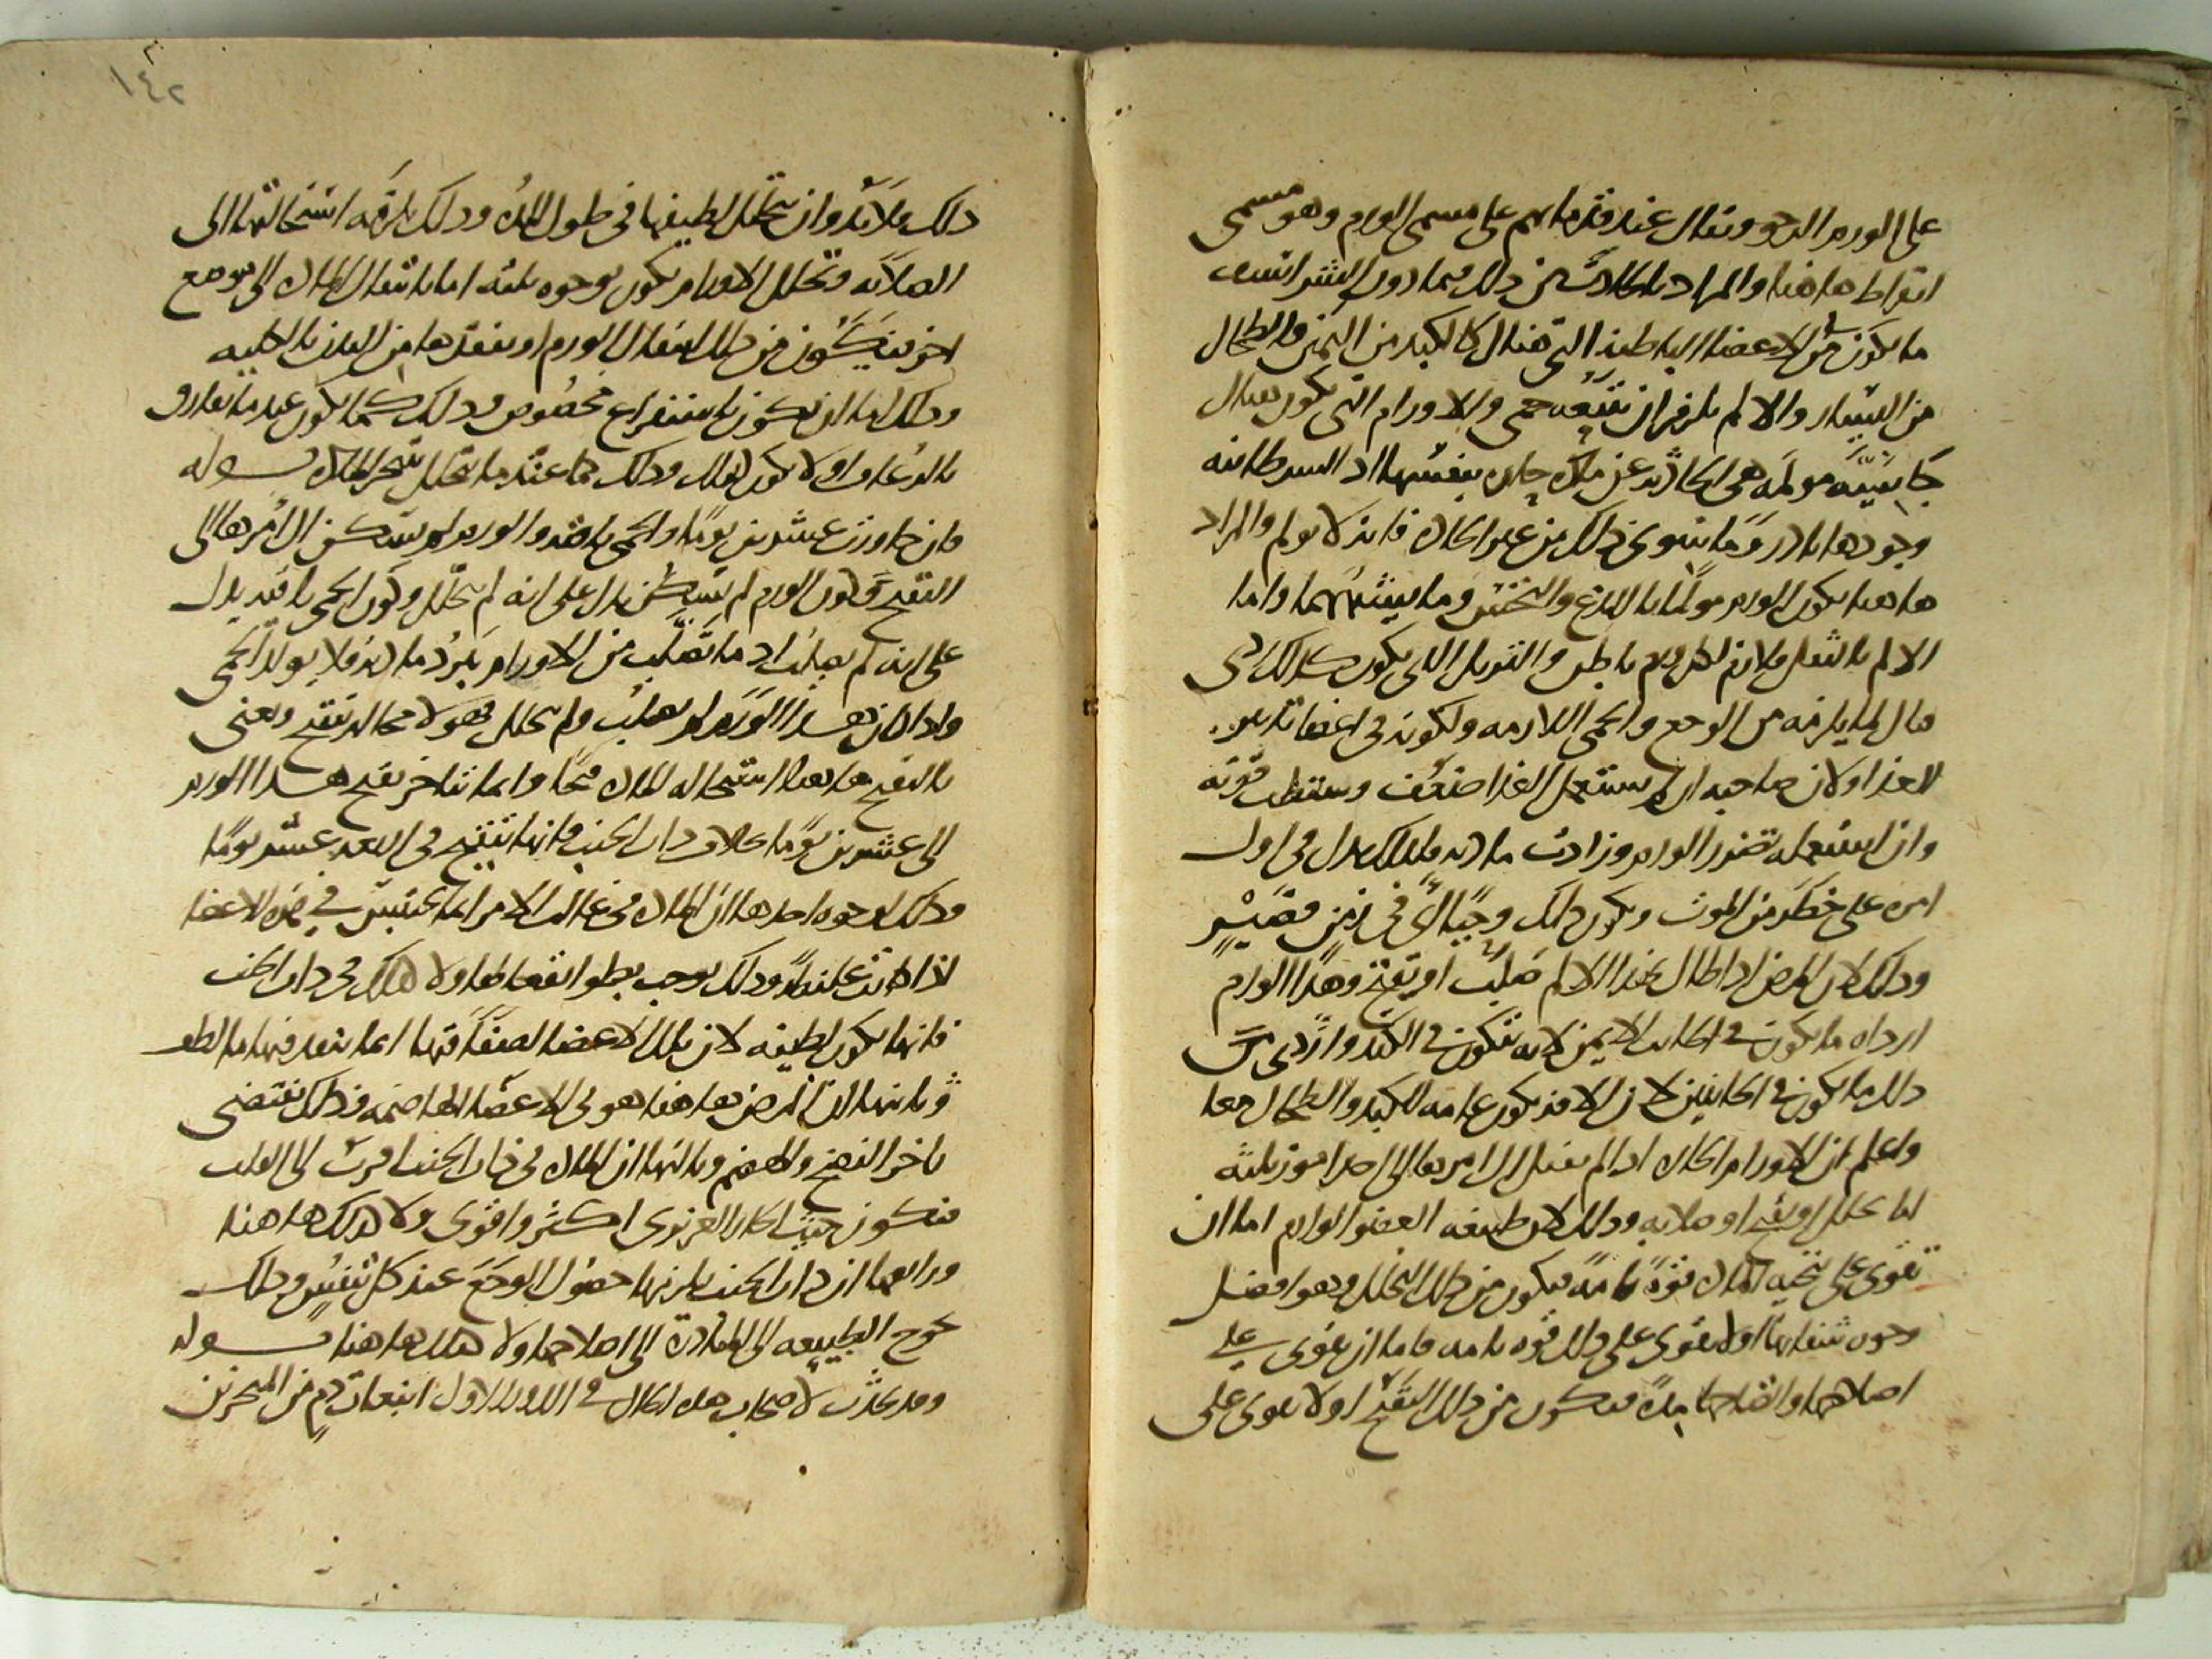 على الورم الرخو ويقال عند قدمائهم على مسمى الورم وهو مسمى
ابقراط هاهنا والمراد بالحادث من ذلك فيما دون الشراسيف
ما يكون في الاعضا الباطنة التي هناك كالكبد من اليمين والطحال
من اليسار والالم يلزم ان تتبعه حمى والاورام التي تكون هناك
مولمة هي الحادثة عن مادة حارة بنفسها اذ السرطانية
وجودها نادر وما سوى ذلك من غير الحارة فانه لا يولم والمراد
هاهنا بكون الورم مولما باللدغ والنخس وما يشبههما واما
الالم بالثقل فلازم لكل ورم باطن والورم الذي يكون كذلك ردي
قتال لما يلزمه من الوجع والحمى اللازمة ولكونه في اعضا
للغذا ولان صاحبه ان لم يستعمل الغذا ضعفت وسقطت قوته
وان استعمله تضرر الورم وزادت مادته فلذلك يدل في اول
امره على خطر من الموت ويكون ذلك في زمن قصير
وذلك لان المرض اذا طال بهذا الالم صلب او تقيح وهذا الورم
ارداه ما يكون في الجانب الايمن لانه يتكون في الكبد واردى من
ذلك ما يكون في الجانبين لان الافة تكون عامة للكبد والطحال معا
واعلم ان الاورام الحارة اذا لم يقتل ال امرها الى احد امور ثلثة
اما تحلل او تقيح او صلابة وذلك لان طبيعة العضو الوارم اما ان
تقوى على تنحية المادة قوة تامة فيكون من ذلك التحلل وهو افضل
وجوه انتقالها او لا تقوى على ذلك قوة تامة فاما ان تقوى على
اصلاحها وانضاجها مدة فيكون من ذلك التقيح او لا تقوى على
١٤٢
ذلك فلا بد وان يتحلل لطيفها في طول المدة وذلك يلزمه استحالتها الى
الصلابة وتحلل الاورام يكون بوجوه ثلثة اما بانتقال المادة الى موضع
اخر فيكون من ذلك انتقال الورم او بنفوذها من البدن بالكلية
وذلك اما ان يكون باستفراغ محسوس وذلك كما يكون عندما تفارق
بالرعاف او لا يكون كذلك وذلك كما عندما تتحلل بتبخر المادة قوله
فان جاوزت عشرين يوما والحمى باقية والورم لم يسكن ال امرها الى
التقيح وكون الورم لم يسكن يدل على انه لم يتحلل وكون الحمى باقية يدل
على انه لم يصلب اذ ما تصلب من الاورام تبرد مادته فلا يولد الحمى
واذا كان هذا الورم لم يصلب ولم يتحلل فهو لا محالة تقيح ويعني
بالتقيح هاهنا استحالة المادة قيحا وانما تتاخر تقيح هذا الورم
الى عشرين يوما بخلاف ذات الجنب فانها تتقيح في اربعة عشر يوما
وذلك لوجوه احدها ان المادة في غالب الامر انما تحتبس في هذه الاعضا
اذا كانت غليظة وذلك يوجب بطو انفعالها ولا كذلك في ذات الجنب
فانها تكون لطيفة لان تلك الاعضا لصفاقتها انما ينفذ فيها ما لطف
وثانيها ان المرض هاهنا هو في الاعضا الهاضمة وذلك يقتضي
تاخر النضج والهضم وثالثها ان المادة في ذات الجنب اقرب الى القلب
فيكون حيث الحار الغريزي اكثر واقوى ولا كذلك هاهنا
ورابعها ان ذات الجنب يلزمها حصول الوجع عند كل تنفس وذلك
يحوج الطبيعة الى المبادرة الى اصلاحها ولا كذلك هاهنا قوله
وقد يحدث لاصحاب هذه الحال في الدور الاول انبعاث دم من المنخرين